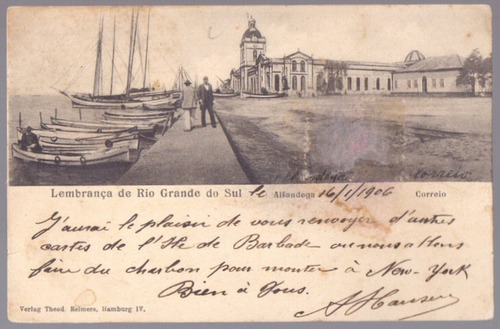 Alfandega
Correio
Lembrança de Rio Grande do Sul le Alfandega 16/1/1906 Correio
J'aurai le plaisir de vous renvoyer d'autres
cartes de l'Ile de Barbade ou nous allons
faire du charbon pour monter à New-York
Bien à Vous.
A Hansen
Verlag Theod. Reimers, Hamburg IV.